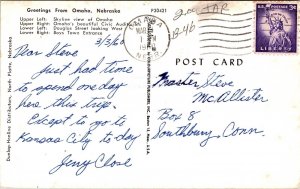 Greetings From Omaha, Nebraska
P33421
Upper Left: Skyline view of Omaha
Upper Right: Omaha's beautiful Civic Auditorium
Lower Left: Douglas Street looking West
Lower Right: Boys Town Entrance
3/3/60
Dear Steve
Just had time
to spend one day
here this trip.
Except to go to
Kansas City to day
Jerry Close
Dunlap-Henline Distributors, North Platte, Nebraska
OMAHA
MAR
NEBR
B-46
U.S. POSTAGE
3¢
LIBERTY
POST CARD
Master Steve
McAllister
Box 8
Southbury, Conn.